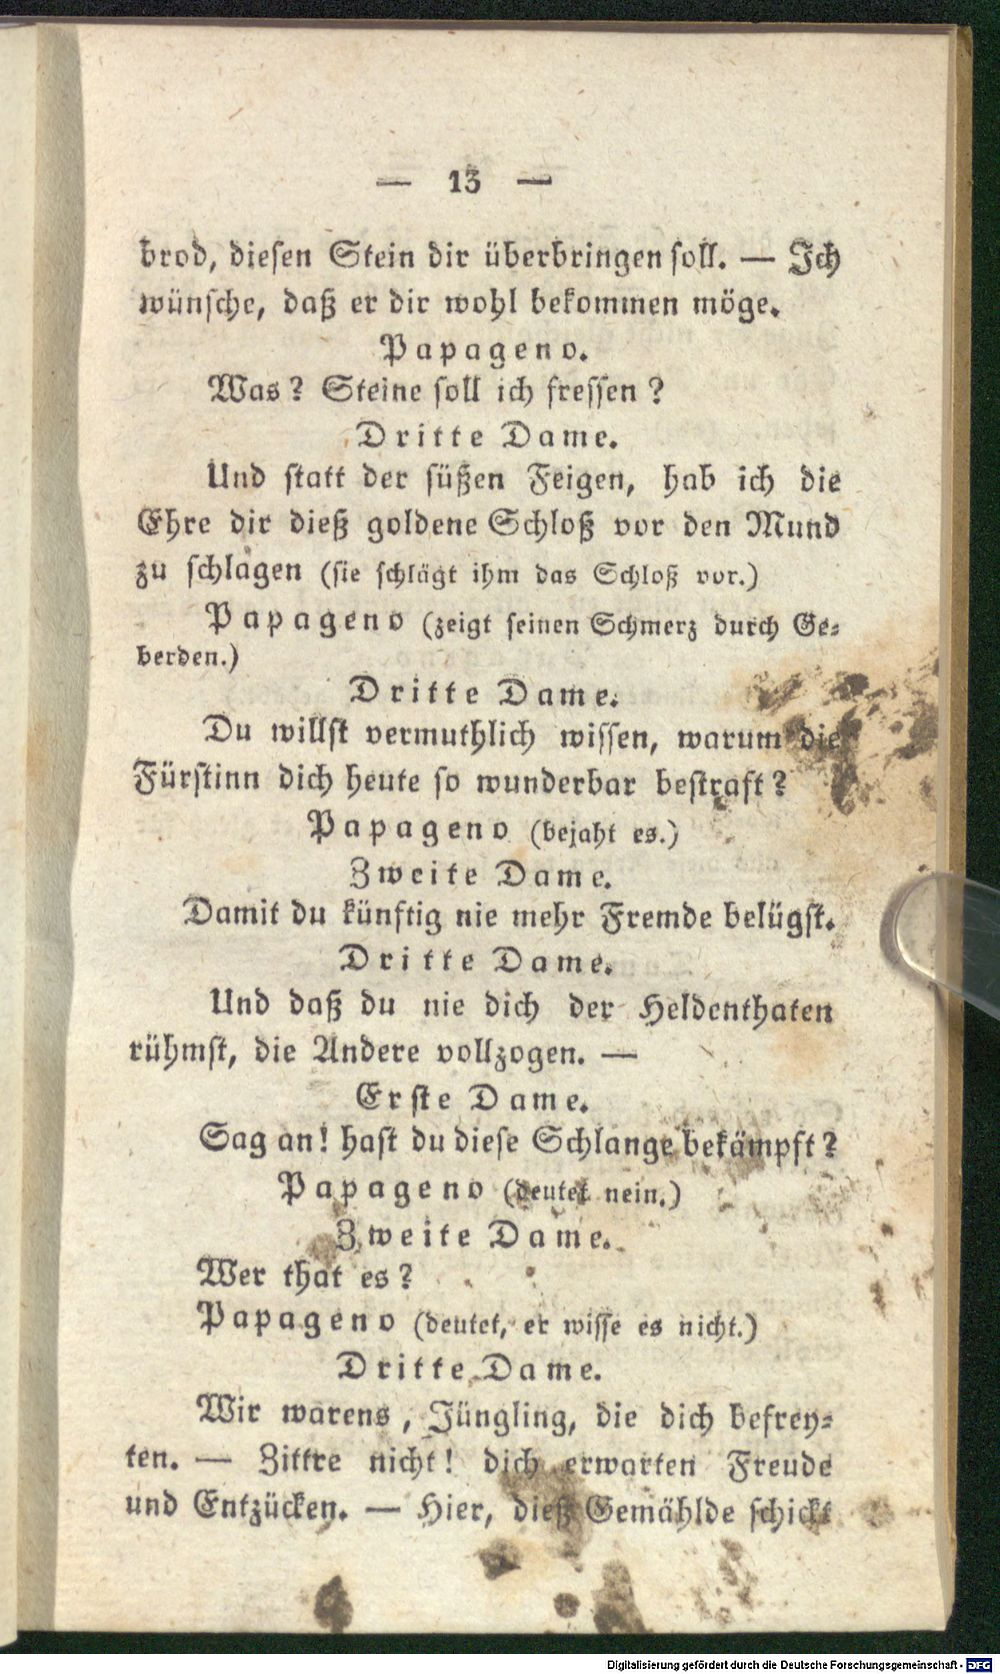 — 13 —
brod, diesen Stein dir überbringen soll. — Ich
wünsche, daß er dir wohl bekommen möge.
Papageno.
Was? Steine soll ich fressen?
Dritte Dame.
Und statt der süßen Feigen, hab ich die
Ehre dir dieß goldene Schloß vor den Mund
zu schlagen (sie schlägt ihm das Schloß vor.)
Papageno (zeigt seinen Schmerz durch Ge-
berden.)
Dritte Dame.
Du willst vermuthlich wissen, warum die
Fürstinn dich heute so wunderbar bestraft?
Papageno (bejaht es.)
Zweite Dame.
Damit du künftig nie mehr Fremde belügst.
Dritte Dame.
Und daß du nie dich der Heldenthaten
rühmst, die Andere vollzogen. —
Erste Dame.
Sag an! hast du diese Schlange bekämpft?
Papageno (deutet nein.)
Zweite Dame.
Wer that es?
Papageno (deutet, er wisse es nicht.)
Dritte Dame.
Wir warens, Jüngling, die dich befrey-
ten. — Zittre nicht! dich erwarten Freude
und Entzücken. — Hier, dieß Gemählde schickt
Digitalisierung gefördert durch die Deutsche Forschungsgemeinschaft - DFG